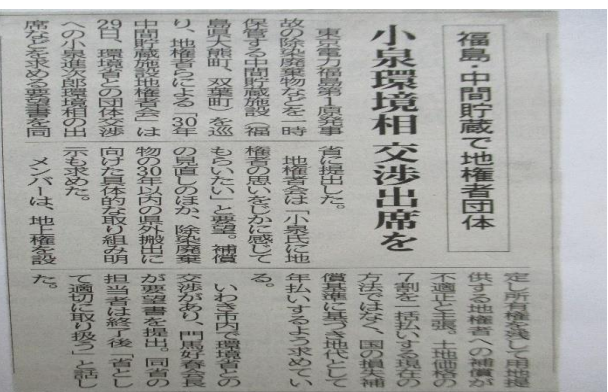 福島・中間貯蔵で地権者団体
小泉環境相 交渉出席を
東京電力福島第1原発事
故の除染廃棄物などを一時
保管する中間貯蔵施設(福
島県大熊町、双葉町)を巡
り、地権者らによる「30年
中間貯蔵施設地権者会」は
29日、環境省との団体交渉
への小泉進次郎環境相の出
席などを求める要望書を同
省に提出した。
地権者会は「小泉氏に地
権者の思いをじかに感じて
もらいたい」と要望。補償
の見直しのほか、除染廃棄
物の30年以内の県外搬出に
向けた具体的な取り組み明
示も求めた。
メンバーは、地上権を設
定し所有権を残して用地提
供する地権者への補償が
不適正と主張、土地価格の
7割を一括払いする現在の
方法ではなく、国の損失補
償基準に基づき地代として
年払いするよう求めてい
る。
いわき市内で環境省との
交渉があり、門馬好春会長
が要望書を提出。同省の
担当者は終了後「省とし
て適切に取り扱う」と話し
た。